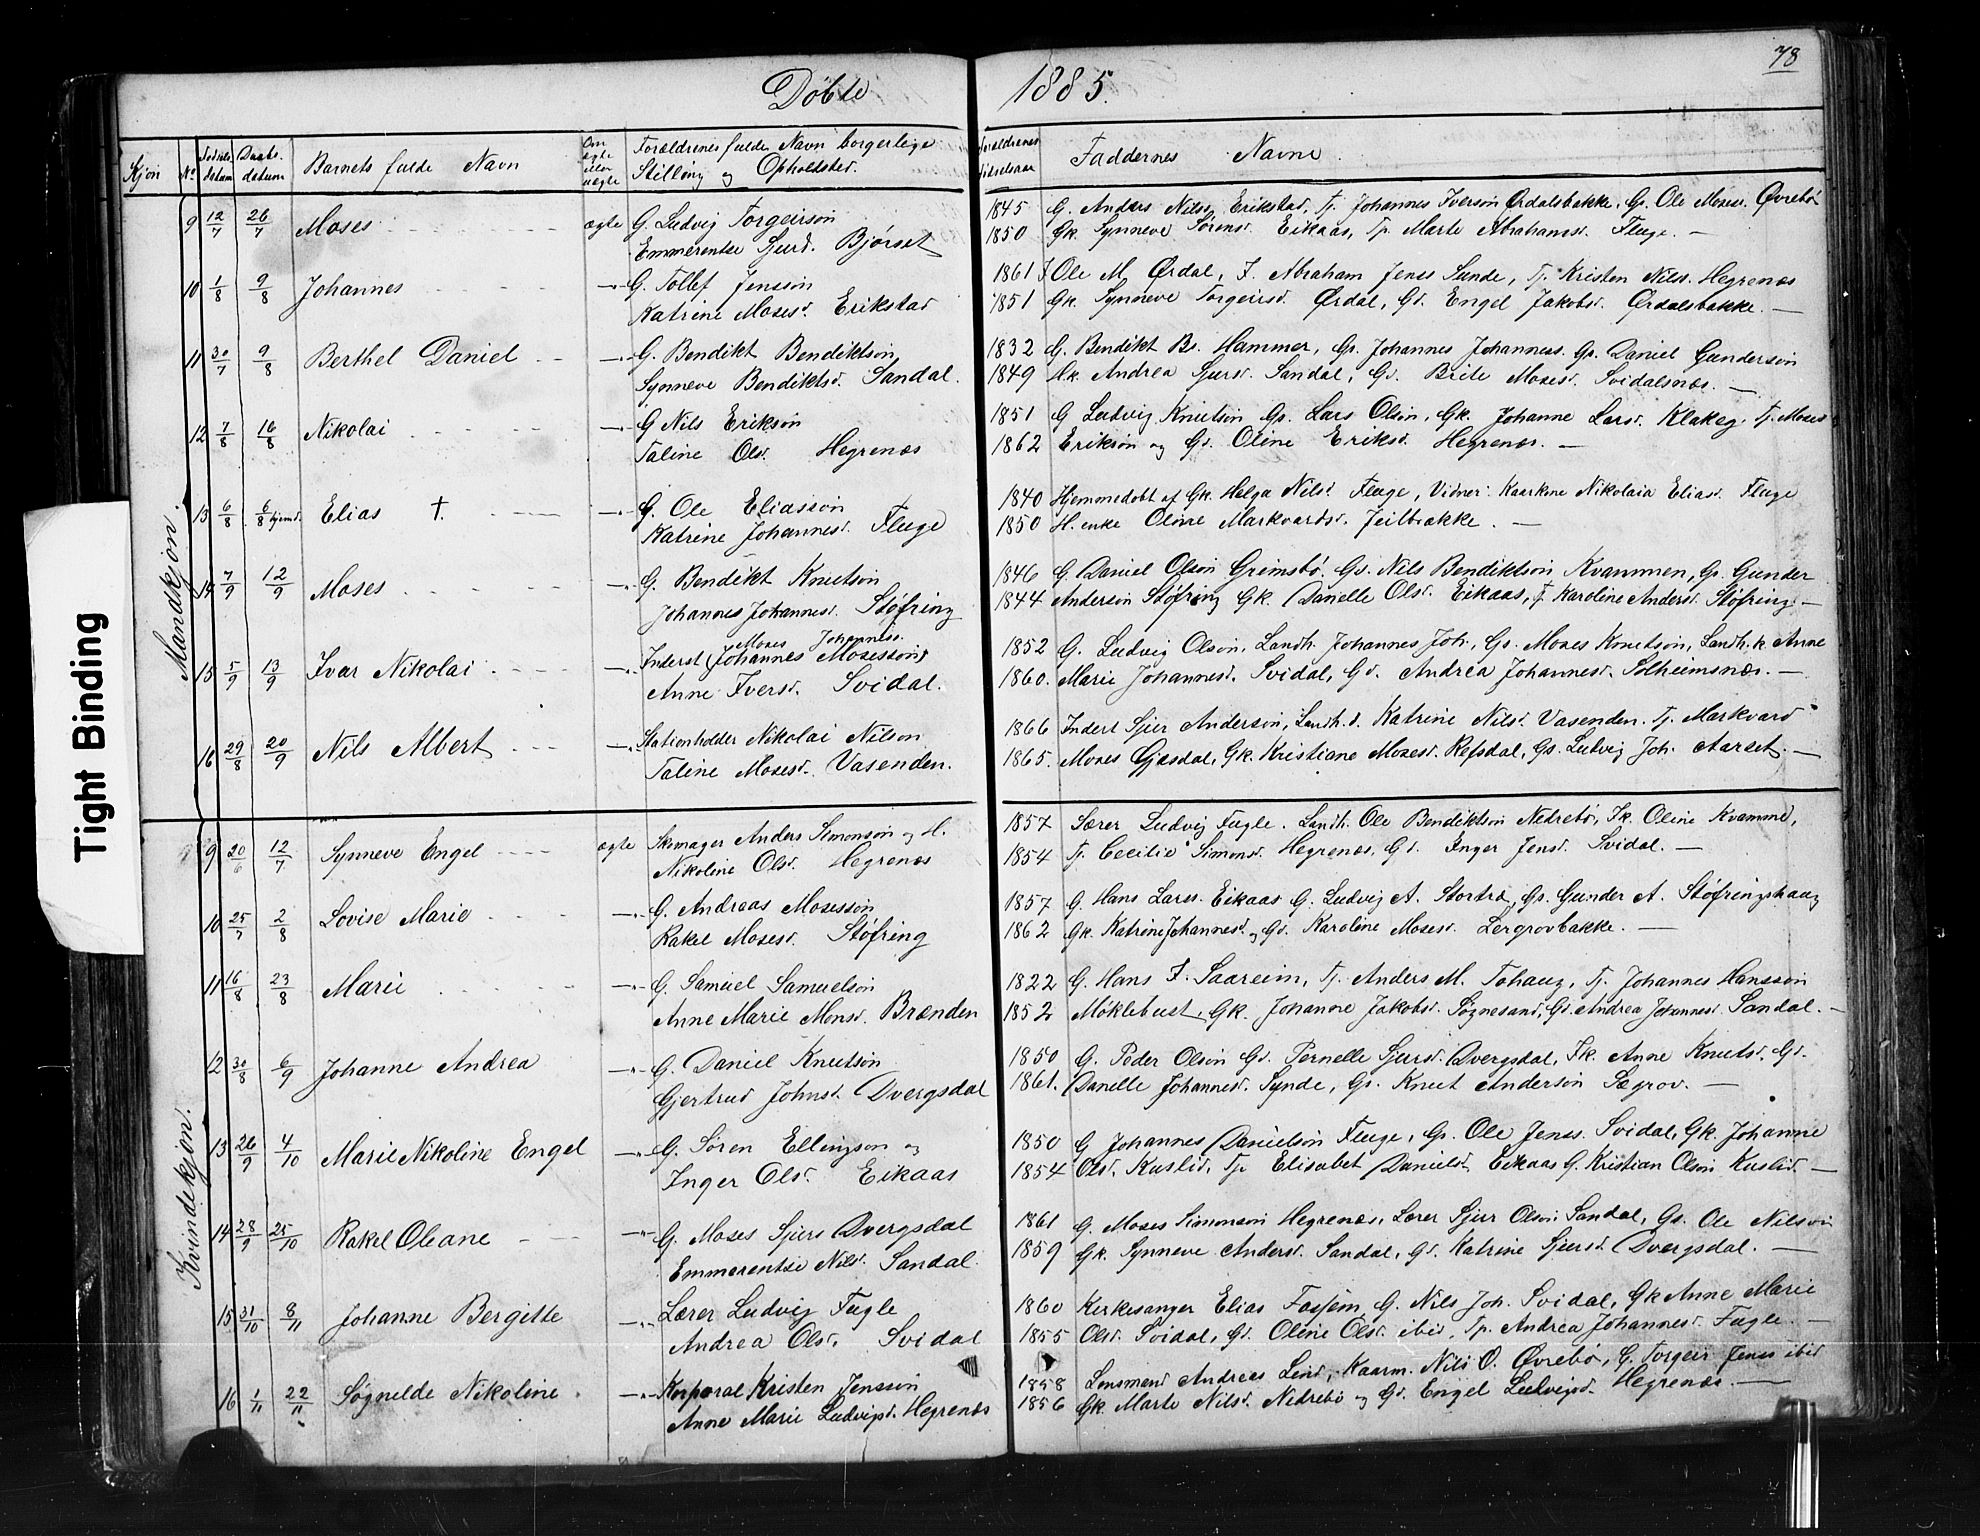 78
Döbte 1885.
Kjön No Födsels datum Daabs datum Barnets fulde Navn Om ægte eller uægte Forældrenes fulde Navn borgerlige Stilling og Opholdsted. Forældrenes Födselsaar Faddernes Navne.
Mandkjön.
9 12/7 26/7 Moses ægte G. Ludvig Torgeirson 1845 G. Anders Nilss. Erikstad, Tj. Johannes Iverson Ørdalsbakke, Gs. Ole Moses. Øvrebö
Emmerentse Sjurd. Bjørset 1850 Gk. Synneve Sörensd. Eikaas, Tp. Marte Abrahamsd. Fluge. —
10 1/8 9/8 Johannes —"— G. Tollef Jensson 1861 F. Ole M. Ørdal, F. Abraham Jenss Sunde, Tj. Kristen Nils. Hegrenæs
Katrine Mosesd. Erikstad 1851 Gk. Synneve Torgeirsd. Ørdal, Gd. Engel Jakobsd. Ørdalsbakke. —
11 30/7 9/8 Berthel Daniel —"— G. Bendikt Bendiktson 1832 G. Bendikt Bs. Hammer, Gs. Johannes Johanness. Gs. Daniel Gunderson
Synneve Bendiktsd. Sandal. 1849 Gk. Andrea Sjursd. Sandal, Gd. Brite Mosesd. Svidalsnæs. —
12 7/8 16/8 Nikolai —"— G Nils Erikson 1851 G Ludvig Knutson Gs. Lars Olson, Gk. Johanne Larsd. Klakeg. Tj. Moses
Taline Olsd. Hegrenæs 1862 Erikson og Gd. Oline Eriksd. Hegrenæs. —
13 6/8 6/8 hjemd. Elias † —"— G. Ole Eliasson 1840 Hjemmedøbt af Gk. Helga Nilsd. Fluge, Vidner: Kaarkone Nikolaia Eliasd. Fluge
Katrine Johannesd. Fluge 1850 H. enke Oline Markvardsd. Jeilbakke. —
14 7/9 12/9 Moses —"— G. Bendikt Knutson 1846 G. Daniel Olson Grimsbö. Gs. Nils Bendiktson Kvammen, Gs. Gunder
Johannes Johannesd. Støfring 1844 Anderson Støfring Gk. Danelle Olsd. Eikaas, Tj. Karoline Andersd. Støfring —
Moses Johanness.
15 5/9 13/9 Ivar Nikolai —"— Inderst (Johannes Mosesson) 1852 G. Ludvig Olson, Landh. Johannes Joh., Gs. Moses Knutson, Landh. k Anne
Anne Iversd. Svidal. 1860. Marie Johannesd. Svidal, Gd. Andrea Johannesd. Solheimsnæs. —
16 29/8 20/9 Nils Albert —"— Stationholder Nikolai Nilson 1866 Inderst Sjur Anderson, Landh. d. Katrine Nilsd. Vasenden. Tj. Markvard
Taline Mosesd. Vasenden. 1865. Moses Gjesdal, Gk. Kristiane Mosesd. Refsdal, Gs. Ludvig Joh. Aarset. —
Kvindekjön.
9 20/6 12/7 Synneve Engel ægte Skmager Anders Simonson og H. 1857 Lærer Ludvig Fugle. Landh. Ole Bendiktson Nedrebö, Fk. Oline Kvamme,
Nikoline Olsd. Hegrenæs 1854 Tj. Cecilie Simonsd. Hegrenæs, Gd. Inger Jensd. Svidal. —
10 25/7 2/8 Lovise Marie —"— G. Andreas Mosesson 1857 G. Hans Larss. Eikaas G. Ludvig A. Stortræ, Gs. Gunder A. Støfringshaug
Rakel Mosesd. Støfring 1862 Gk. Katrine Johannesd. og Gd. Karoline Mosesd. Lergrovbakke. —
11 16/8 23/8 Marie —"— G. Samuel Samuelson 1822 G. Hans J. Saareim, Tj. Anders M. Tohaug, Tj. Johannes Hansson
Anne Marie Monsd. Brænden 1852 Möklebust, Gk. Johanne Jakobsd. Søgnesand, Gd. Andrea Johannesd. Sandal. —
12 30/8 6/9 Johanne Andrea —"— G. Daniel Knutson 1850 G. Peder Olson Gd. Pernelle Sjursd. Dvergsdal, Fk. Anne Knutsd. Gd.
Gjertrud Johnsd. Dvergsdal 1861. Danelle Johannesd. Synde, Gs. Knut Anderson Sægrov. —
13 26/9 4/10 Marie Nikoline Engel —"— G. Sören Ellingson og 1850 G Johannes Danielson Fluge, Gs. Ole Jenss. Svidal, Gk. Johanne
Inger Olsd. Eikaas 1854 Olsd. Kuslid, Tp. Elisabet Danielsd. Eikaas G. Kristian Olson Kuslid —
14 28/9 25/10 Rakel Oleane —"— G. Moses Sjurs Dvergsdal 1861 G. Moses Simonson Hegrenæs, Lærer Sjur Olson Sandal, Gs. Ole Nilson
Emmerentse Nilsd. Sandal. 1859 Gk. Synneve Andersd. Sandal, Gd. Katrine Sjursd. Dvergsdal. —
15 31/10 8/11 Johanne Bergitte —"— Lærer Ludvig Fugle 1860 Kirkesanger Elias Fossem, G. Nils Joh. Svidal, Gk Anne Marie
Andrea Olsd. Svidal 1855 Olsd. Svidal, Gd. Oline Olsd. ibid, Tp. Andrea Johannesd. Fugle. —
16 1/11 22/11 Søgnelde Nikoline —"— Korporal Kristen Jensson 1858 Lensmand Andreas Lind, Kaarm. Nils O. Øvrebö, G. Torgeir Jenss ibid
Anne Marie Ludvigsd. Hegrenæs 1856 Gk. Marte Nilsd. Nedrebö og Gd. Engel Ludvigsd. Hegrenæs. —
Tight Binding